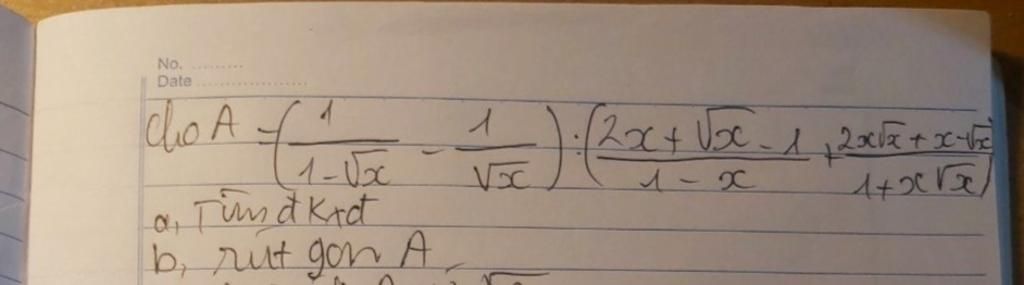 No. ..........
Date ....................
Cho A = (1/(1-√x) - 1/√x) : ((2x+√x-1)/(1-x) + (2x√x+x-√x)/(1+x√x))
a, Tìm đkxđ
b, rút gọn A